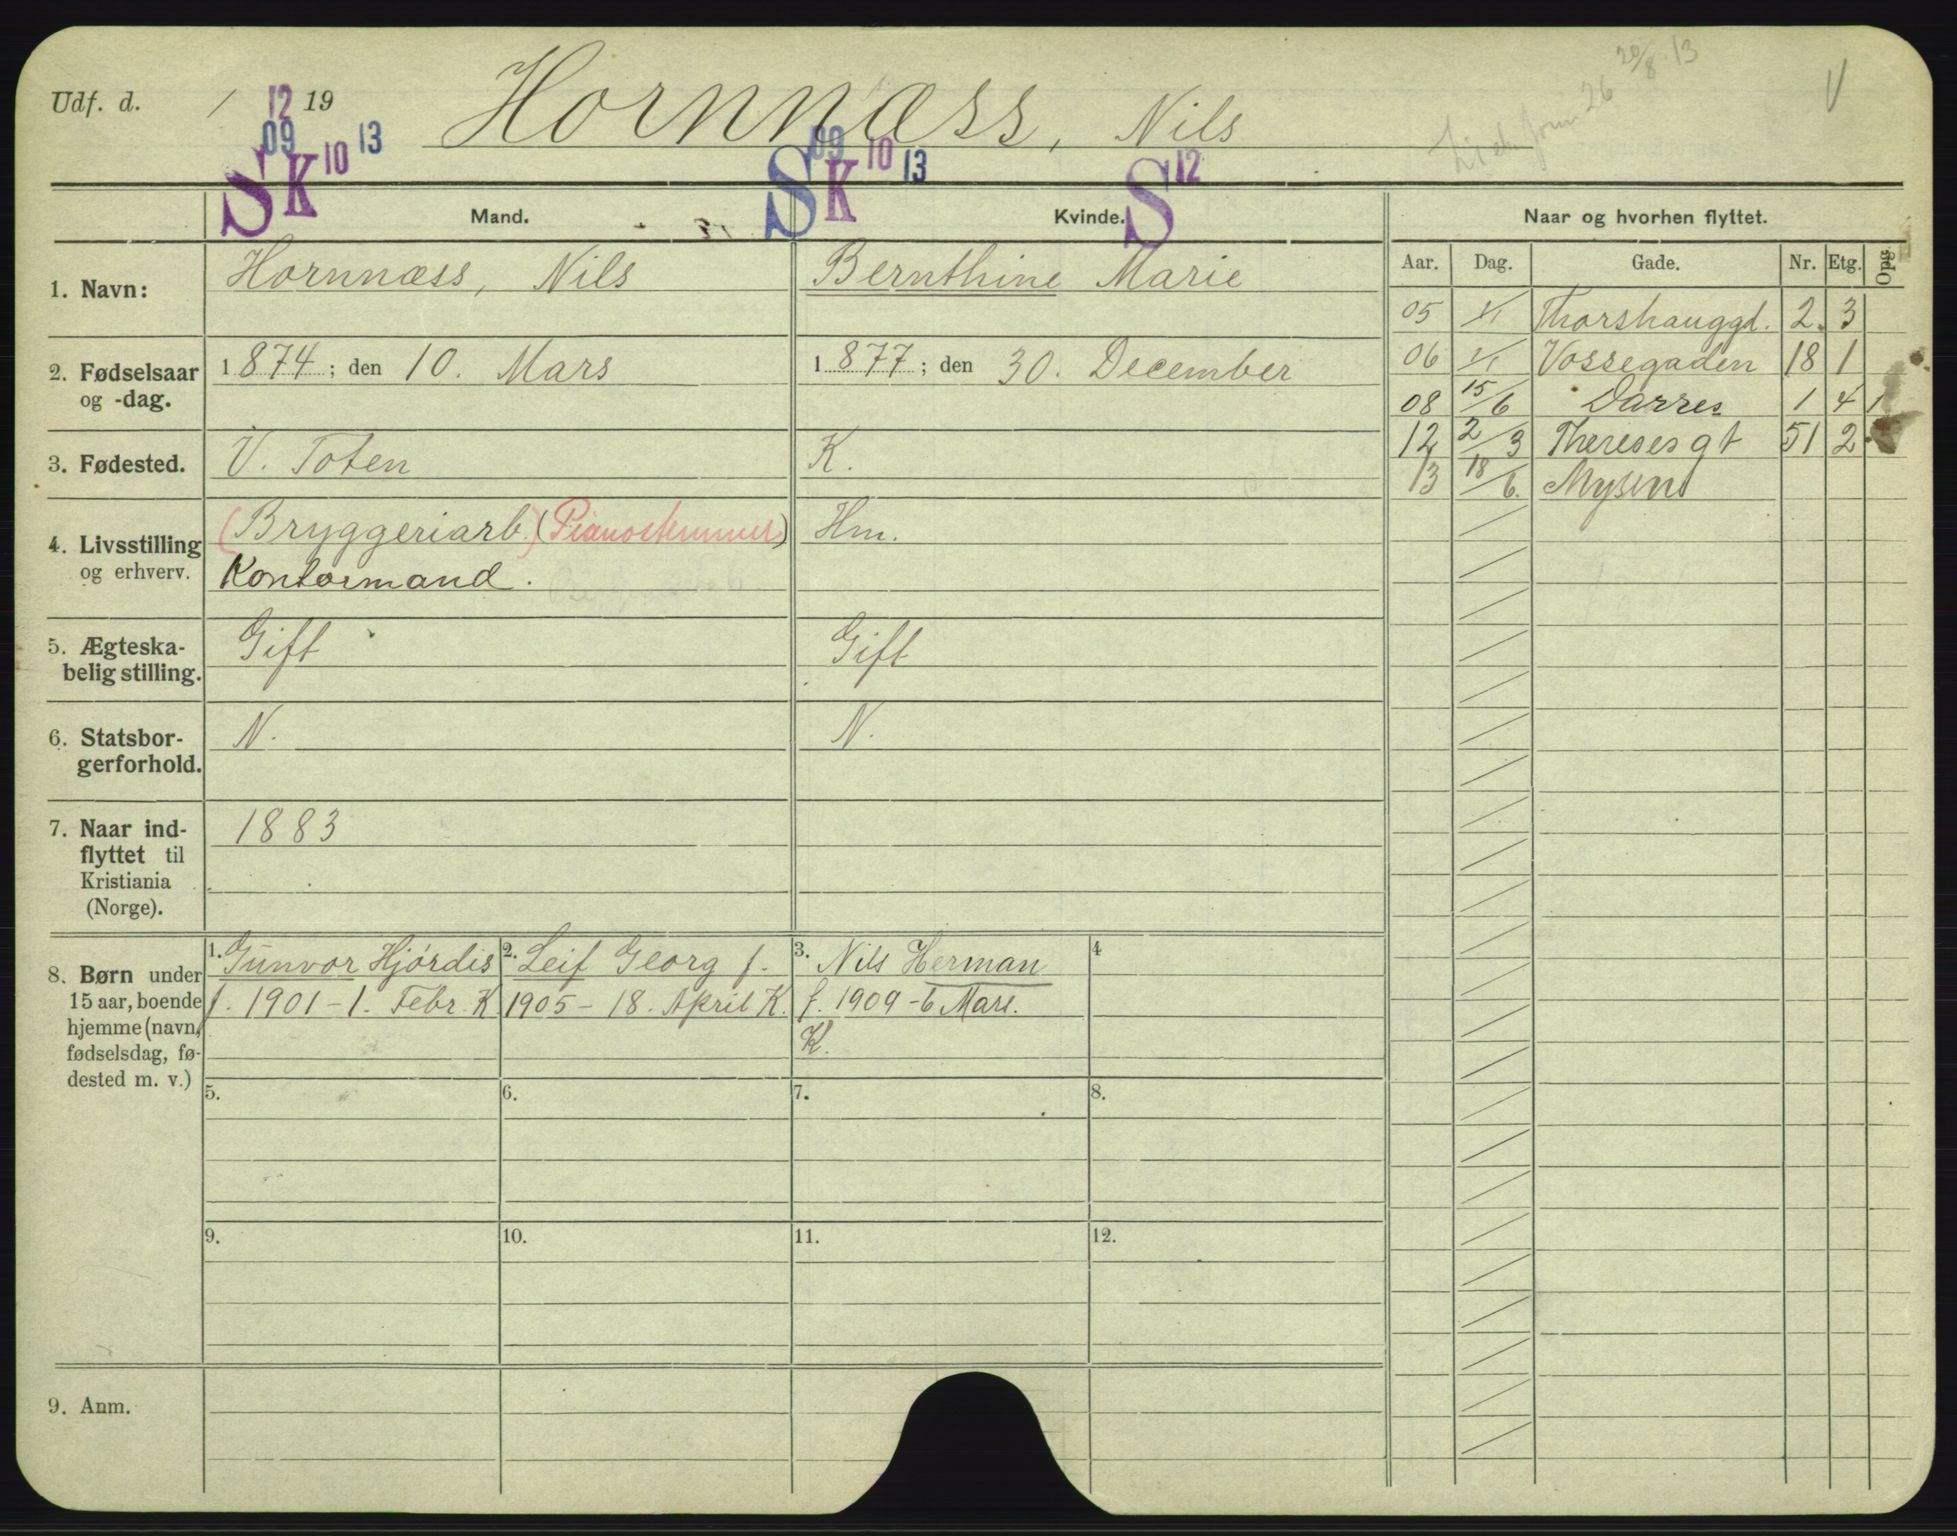 Udf. d. / 19 Hornnæss, Nils 20/8 13 V
12
09 10 13 09 10 13 12
SK SK S
Mand. Kvinde. Naar og hvorhen flyttet.
Aar. Dag. Gade. Nr. Etg. Opg.
1. Navn: Hornnæss, Nils Bernthine Marie
05 Thorshauggd. 2. 3
06 Vossegaden 18 1
08 15/6 Darres 1 4 1
12 2/3 Theresesgt 51 2
13 18/6. Mysen
2. Fødselsaar 1874; den 10. Mars 1877; den 30. December
og -dag.
3. Fødested. V. Toten K.
4. Livsstilling (Bryggeriarb.) (Pianostemmer) Hm.
og erhverv. Kontormand.
5. Ægteska- Gift Gift
belig stilling.
6. Statsbor- N. N.
gerforhold.
7. Naar ind- 1883
flyttet til
Kristiania
(Norge).
8. Børn under
15 aar, boende
hjemme (navn,
fødselsdag, fø-
dested m. v.)
1. Gunvor Hjórdis
f. 1901 - 1. Febr. K
2. Leif Georg f.
1905 - 18. April K.
3. Nils Herman
f. 1909 - 6 Mars.
K.
4
5. 6. 7. 8.
9. 10. 11. 12.
9. Anm.